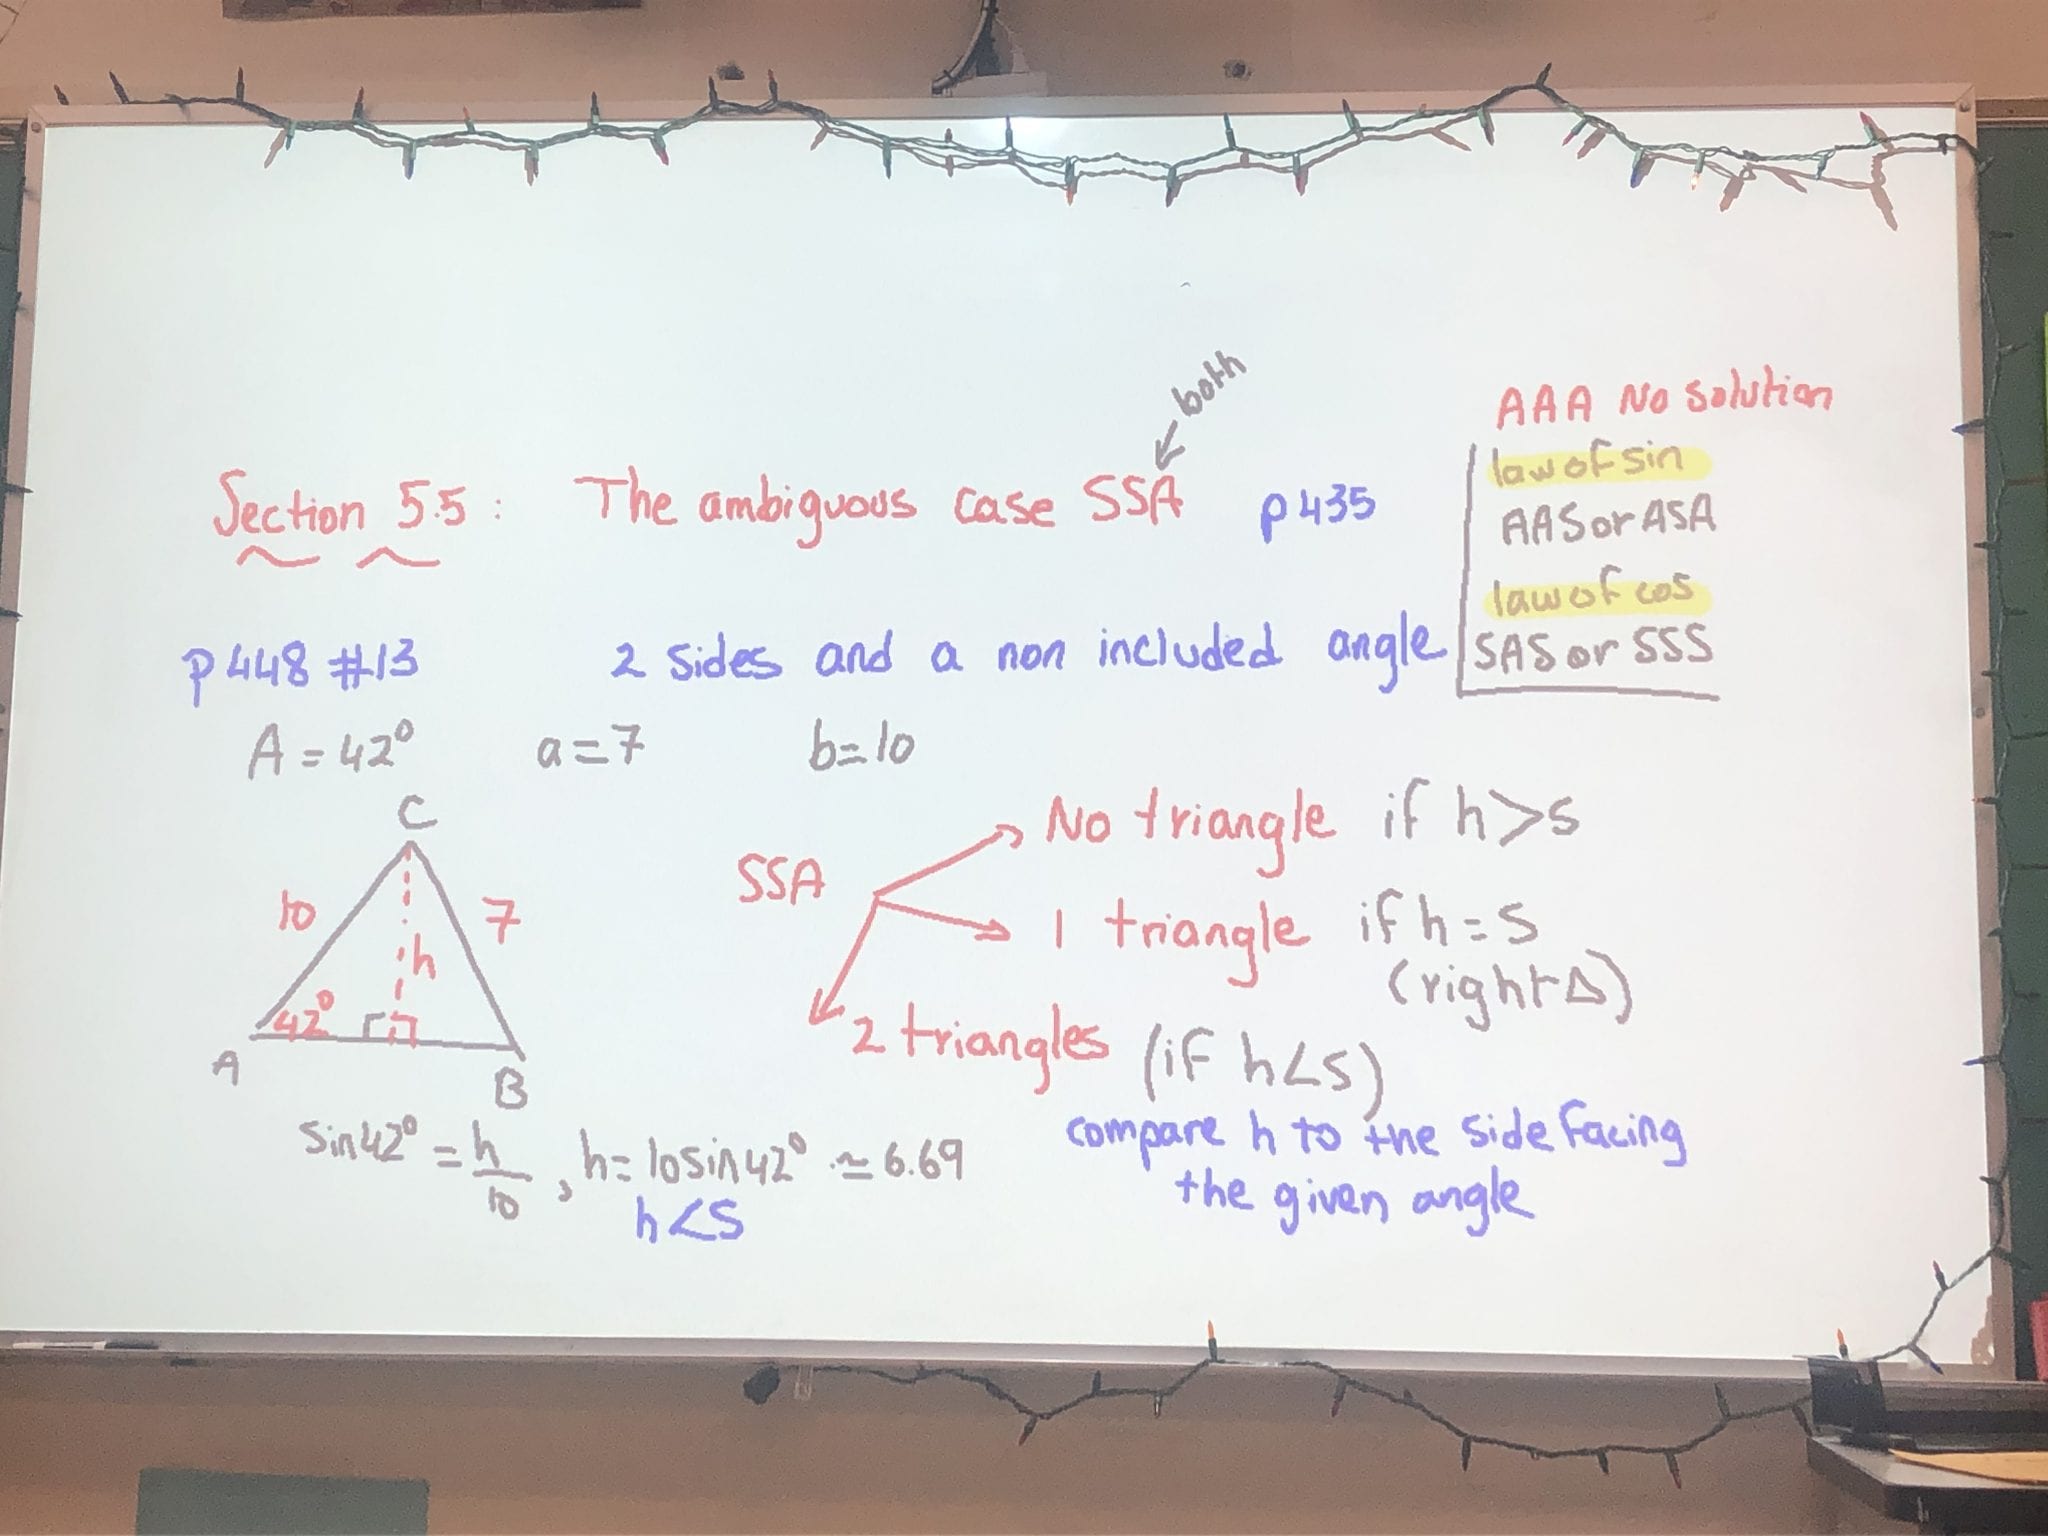 both
AAA No solution
law of sin
AAS or ASA
law of cos
SAS or SSS
Section 5.5 : The ambiguous case SSA p 435
p 448 #13 2 sides and a non included angle
A = 42° a = 7 b = 10
C
10 7
h
42°
A B
SSA
No triangle if h > s
1 triangle if h = s
(right Δ)
2 triangles (if h < s)
compare h to the side facing
the given angle
sin 42° = h/10 , h = 10 sin 42° ≃ 6.69
h < s